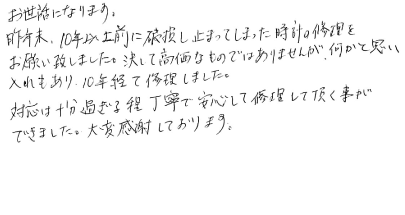 お世話になります。
昨年末、10年以上前に破損し止まってしまった時計の修理を
お願い致しました。決して高価なものではありませんが、何かと思い
入れもあり、10年経て修理しました。
対応は十分過ぎる程丁寧で安心して修理して頂く事が
できました。大変感謝しております。